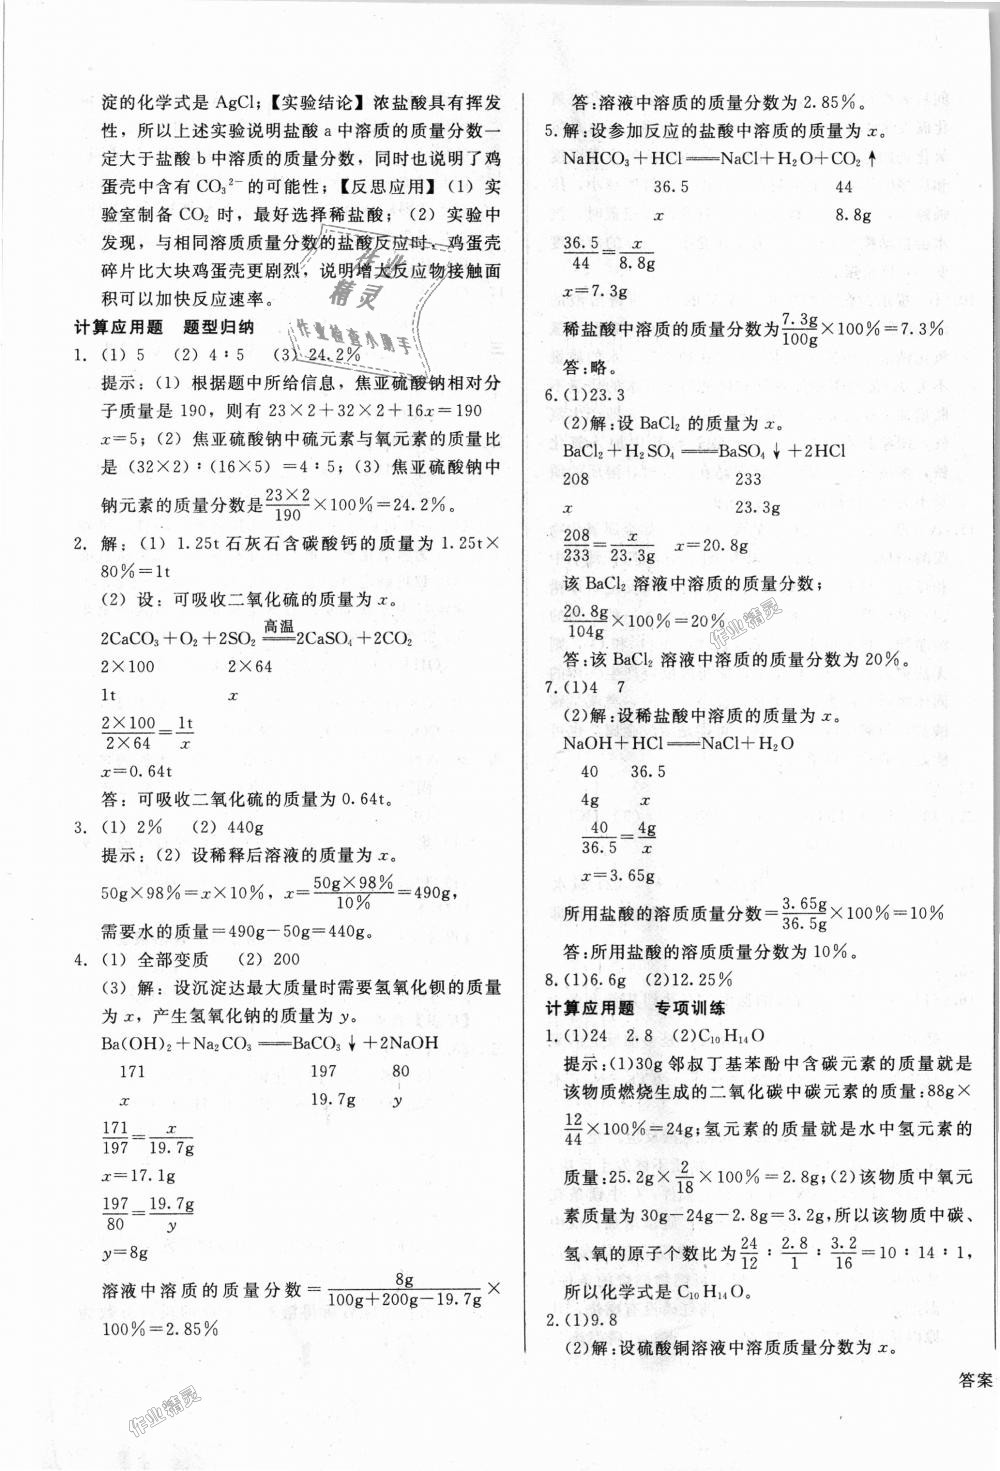 淀的化学式是 AgCl；【实验结论】浓盐酸具有挥发
性，所以上述实验说明盐酸 a 中溶质的质量分数一
定大于盐酸 b 中溶质的质量分数，同时也说明了鸡
蛋壳中含有 CO₃²⁻ 的可能性；【反思应用】（1）实
验室制备 CO₂ 时，最好选择稀盐酸；（2）实验中
发现，与相同溶质质量分数的盐酸反应时、鸡蛋壳
碎片比大块鸡蛋壳更剧烈，说明增大反应物接触面
积可以加快反应速率。
计算应用题 题型归纳
1.（1）5 （2）4∶5 （3）24.2%
提示：（1）根据题中所给信息，焦亚硫酸钠相对分
子质量是 190，则有 23×2+32×2+16x=190
x=5；（2）焦亚硫酸钠中硫元素与氧元素的质量比
是（32×2）∶（16×5）=4∶5；（3）焦亚硫酸钠中
钠元素的质量分数是 23×2/190 ×100%=24.2%。
2. 解：（1）1.25t 石灰石含碳酸钙的质量为 1.25t×
80%=1t
（2）设：可吸收二氧化硫的质量为 x。
2CaCO₃+O₂+2SO₂ 高温══ 2CaSO₄+2CO₂
2×100 2×64
1t x
2×100/2×64 = 1t/x
x=0.64t
答：可吸收二氧化硫的质量为 0.64t。
3.（1）2% （2）440g
提示：（2）设稀释后溶液的质量为 x。
50g×98%=x×10%，x= 50g×98%/10% =490g，
需要水的质量=490g-50g=440g。
4.（1）全部变质 （2）200
（3）解：设沉淀达最大质量时需要氢氧化钡的质量
为 x，产生氢氧化钠的质量为 y。
Ba(OH)₂+Na₂CO₃══BaCO₃↓+2NaOH
171 197 80
x 19.7g y
171/197 = x/19.7g
x=17.1g
197/80 = 19.7g/y
y=8g
溶液中溶质的质量分数= 8g/100g+200g-19.7g ×
100%=2.85%
答:溶液中溶质的质量分数为 2.85%。
5.解:设参加反应的盐酸中溶质的质量为 x。
NaHCO₃+HCl══NaCl+H₂O+CO₂↑
36.5 44
x 8.8g
36.5/44 = x/8.8g
x=7.3g
稀盐酸中溶质的质量分数为 7.3g/100g ×100%=7.3%
答:略。
6.(1)23.3
(2)解:设 BaCl₂ 的质量为 x。
BaCl₂+H₂SO₄══BaSO₄↓+2HCl
208 233
x 23.3g
208/233 = x/23.3g x=20.8g
该 BaCl₂ 溶液中溶质的质量分数;
20.8g/104g ×100%=20%
答:该 BaCl₂ 溶液中溶质的质量分数为 20%。
7.(1)4 7
(2)解:设稀盐酸中溶质的质量为 x。
NaOH+HCl══NaCl+H₂O
40 36.5
4g x
40/36.5 = 4g/x
x=3.65g
所用盐酸的溶质质量分数= 3.65g/36.5g ×100%=10%
答:所用盐酸的溶质质量分数为 10%。
8.(1)6.6g (2)12.25%
计算应用题 专项训练
1.(1)24 2.8 (2)C₁₀H₁₄O
提示:(1)30g 邻叔丁基苯酚中含碳元素的质量就是
该物质燃烧生成的二氧化碳中碳元素的质量:88g×
12/44 ×100%=24g;氢元素的质量就是水中氢元素的
质量:25.2g× 2/18 ×100%=2.8g;(2)该物质中氧元
素质量为 30g-24g-2.8g=3.2g,所以该物质中碳、
氢、氧的原子个数比为 24/12 ∶ 2.8/1 ∶ 3.2/16 =10∶14∶1,
所以化学式是 C₁₀H₁₄O。
2.(1)9.8
(2)解:设硫酸铜溶液中溶质质量分数为 x。
答案
作业
精灵
作业检查小助手
作业精灵
作业精灵